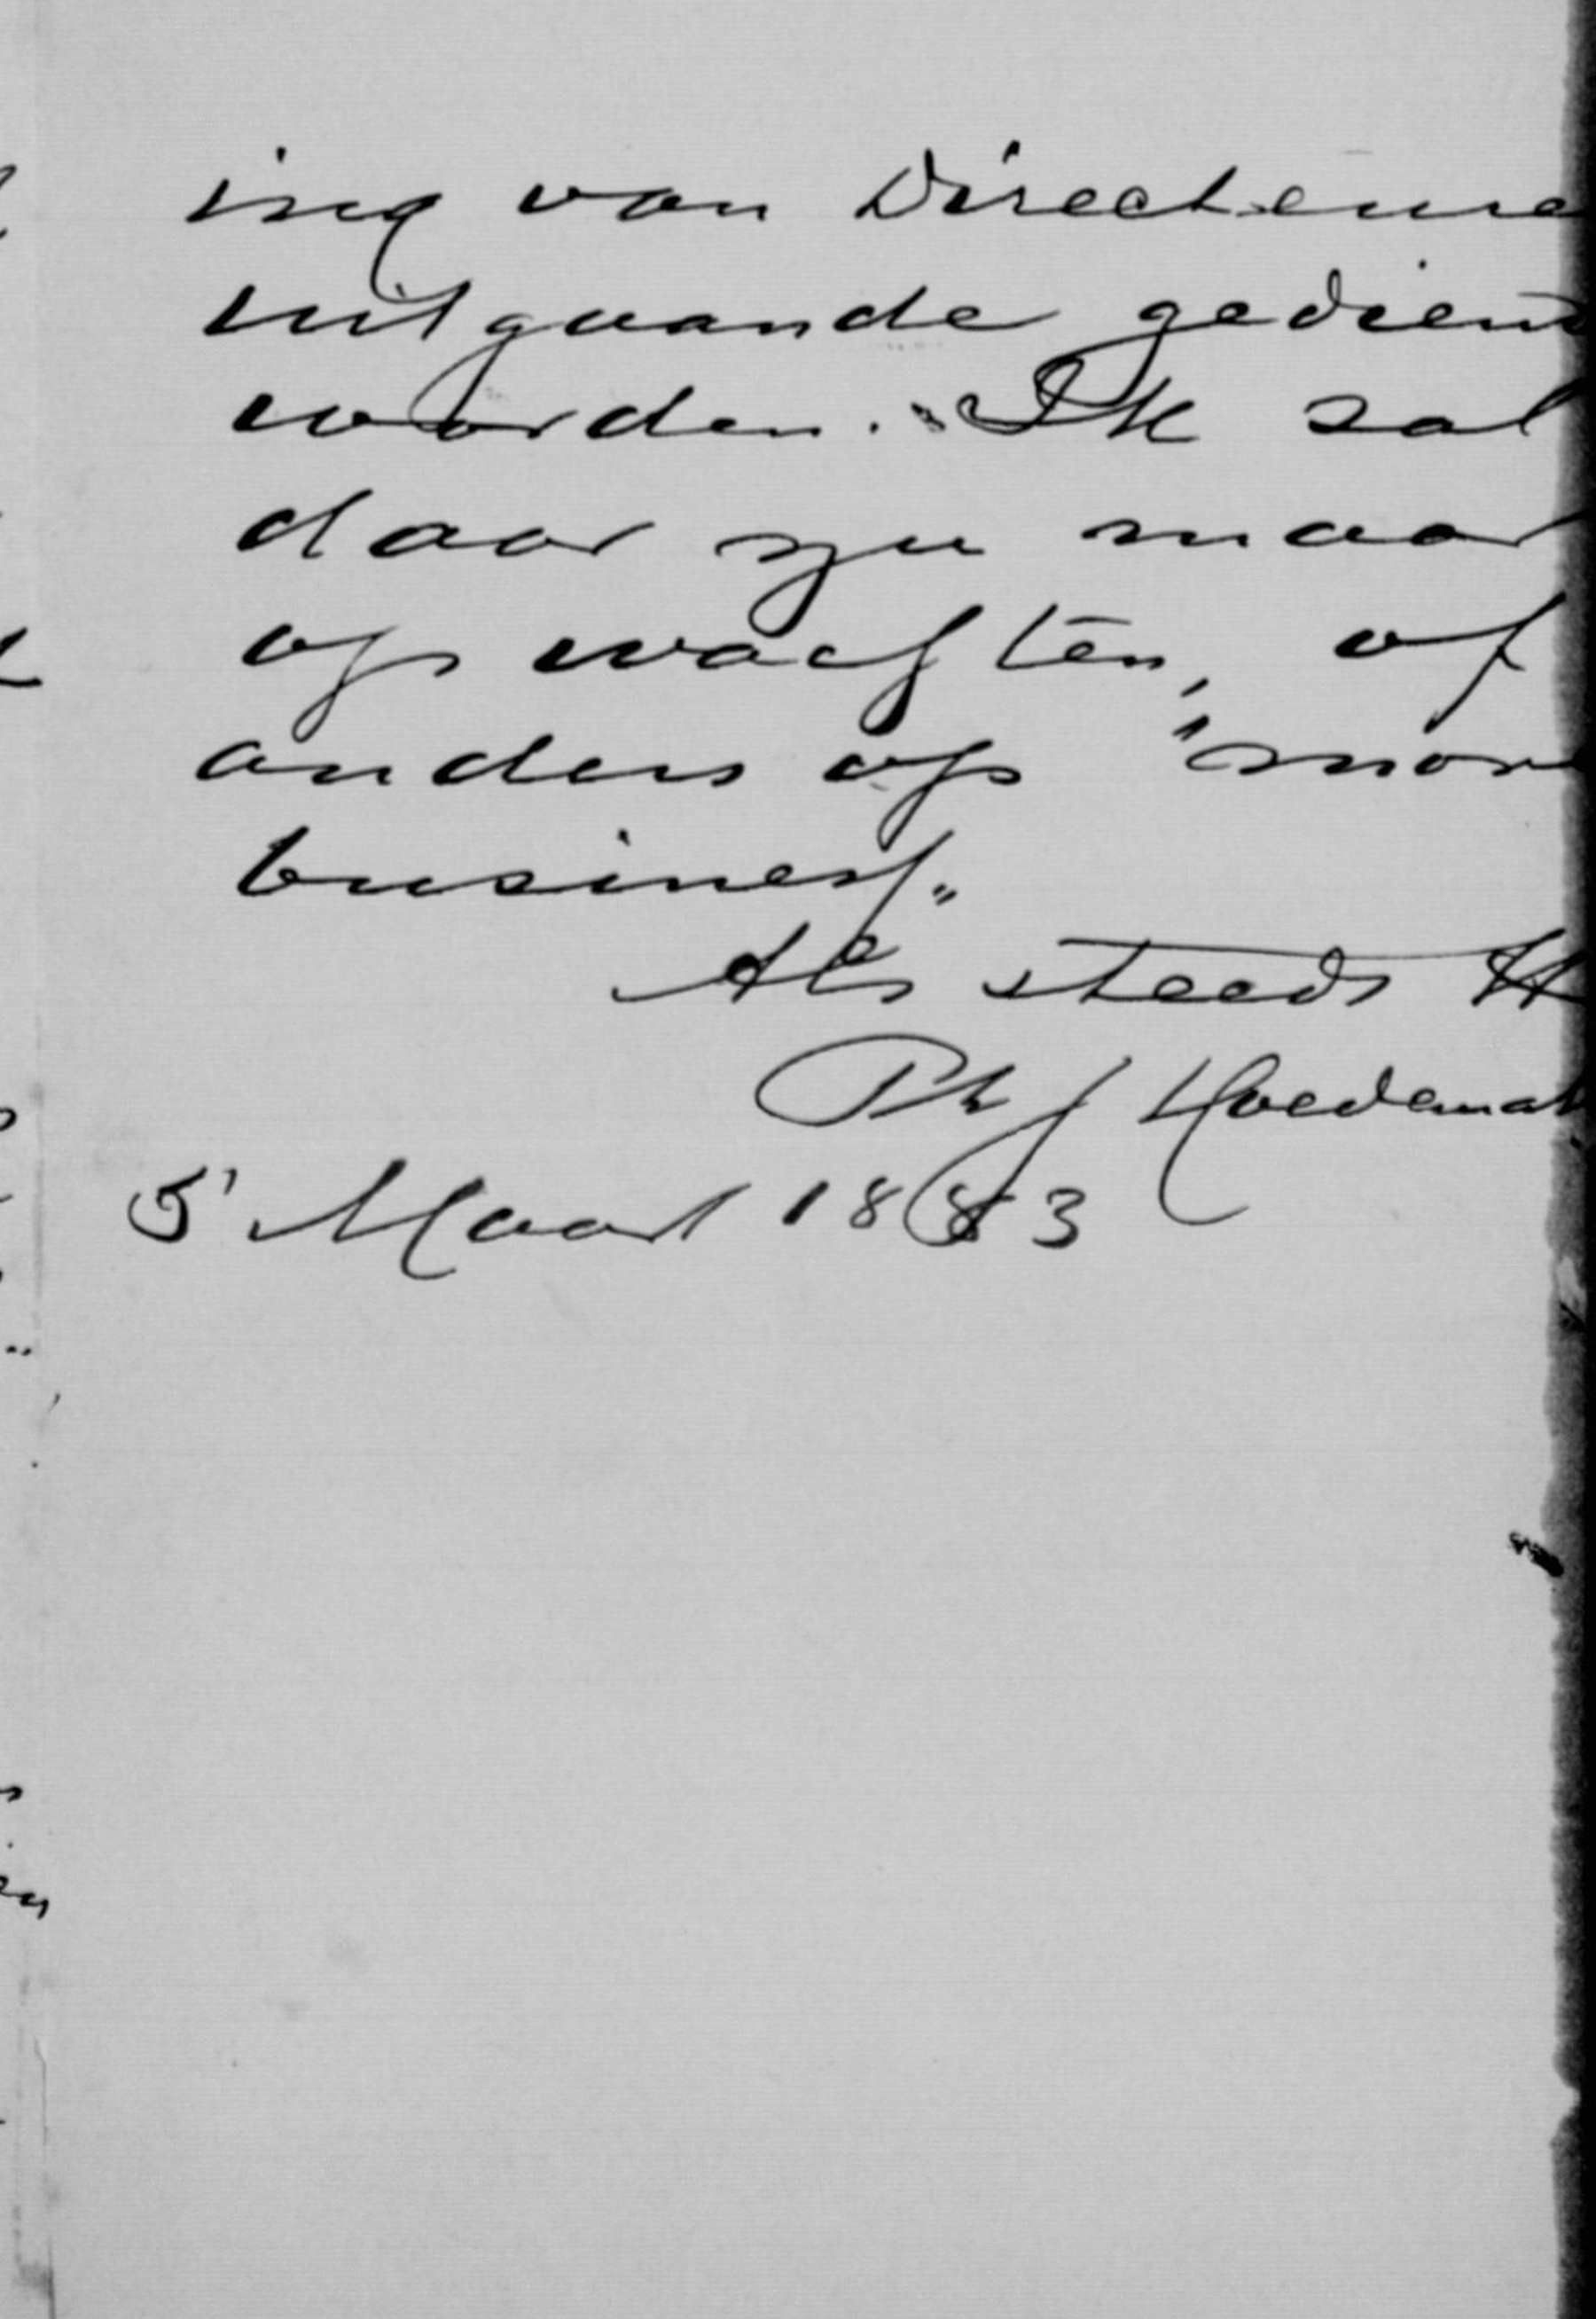 ing van Directeure
uitgaande gediend
worden. Ik zal
daar nu maar
op wachten, of
anders op "more
business"
Als steeds tt
Ph J Hoedemak
5' Maart 1883